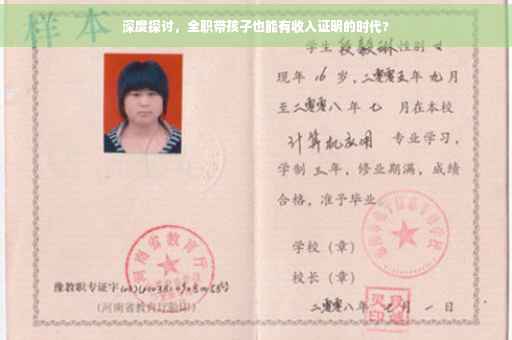 深度探讨，全职带孩子也能有收入证明的时代？
样本
学生 段毅琳 性别 女
现年 16 岁，二零零五年 九 月
至二零零八年 七 月在本校
计算机应用 专业学习，
学制 三 年，修业期满，成绩
合格，准予毕业
河南省教育厅
学校（章）
校长（章）
豫教职专证字
（河南省教育厅验印）
二零零八年 七 月 一 日